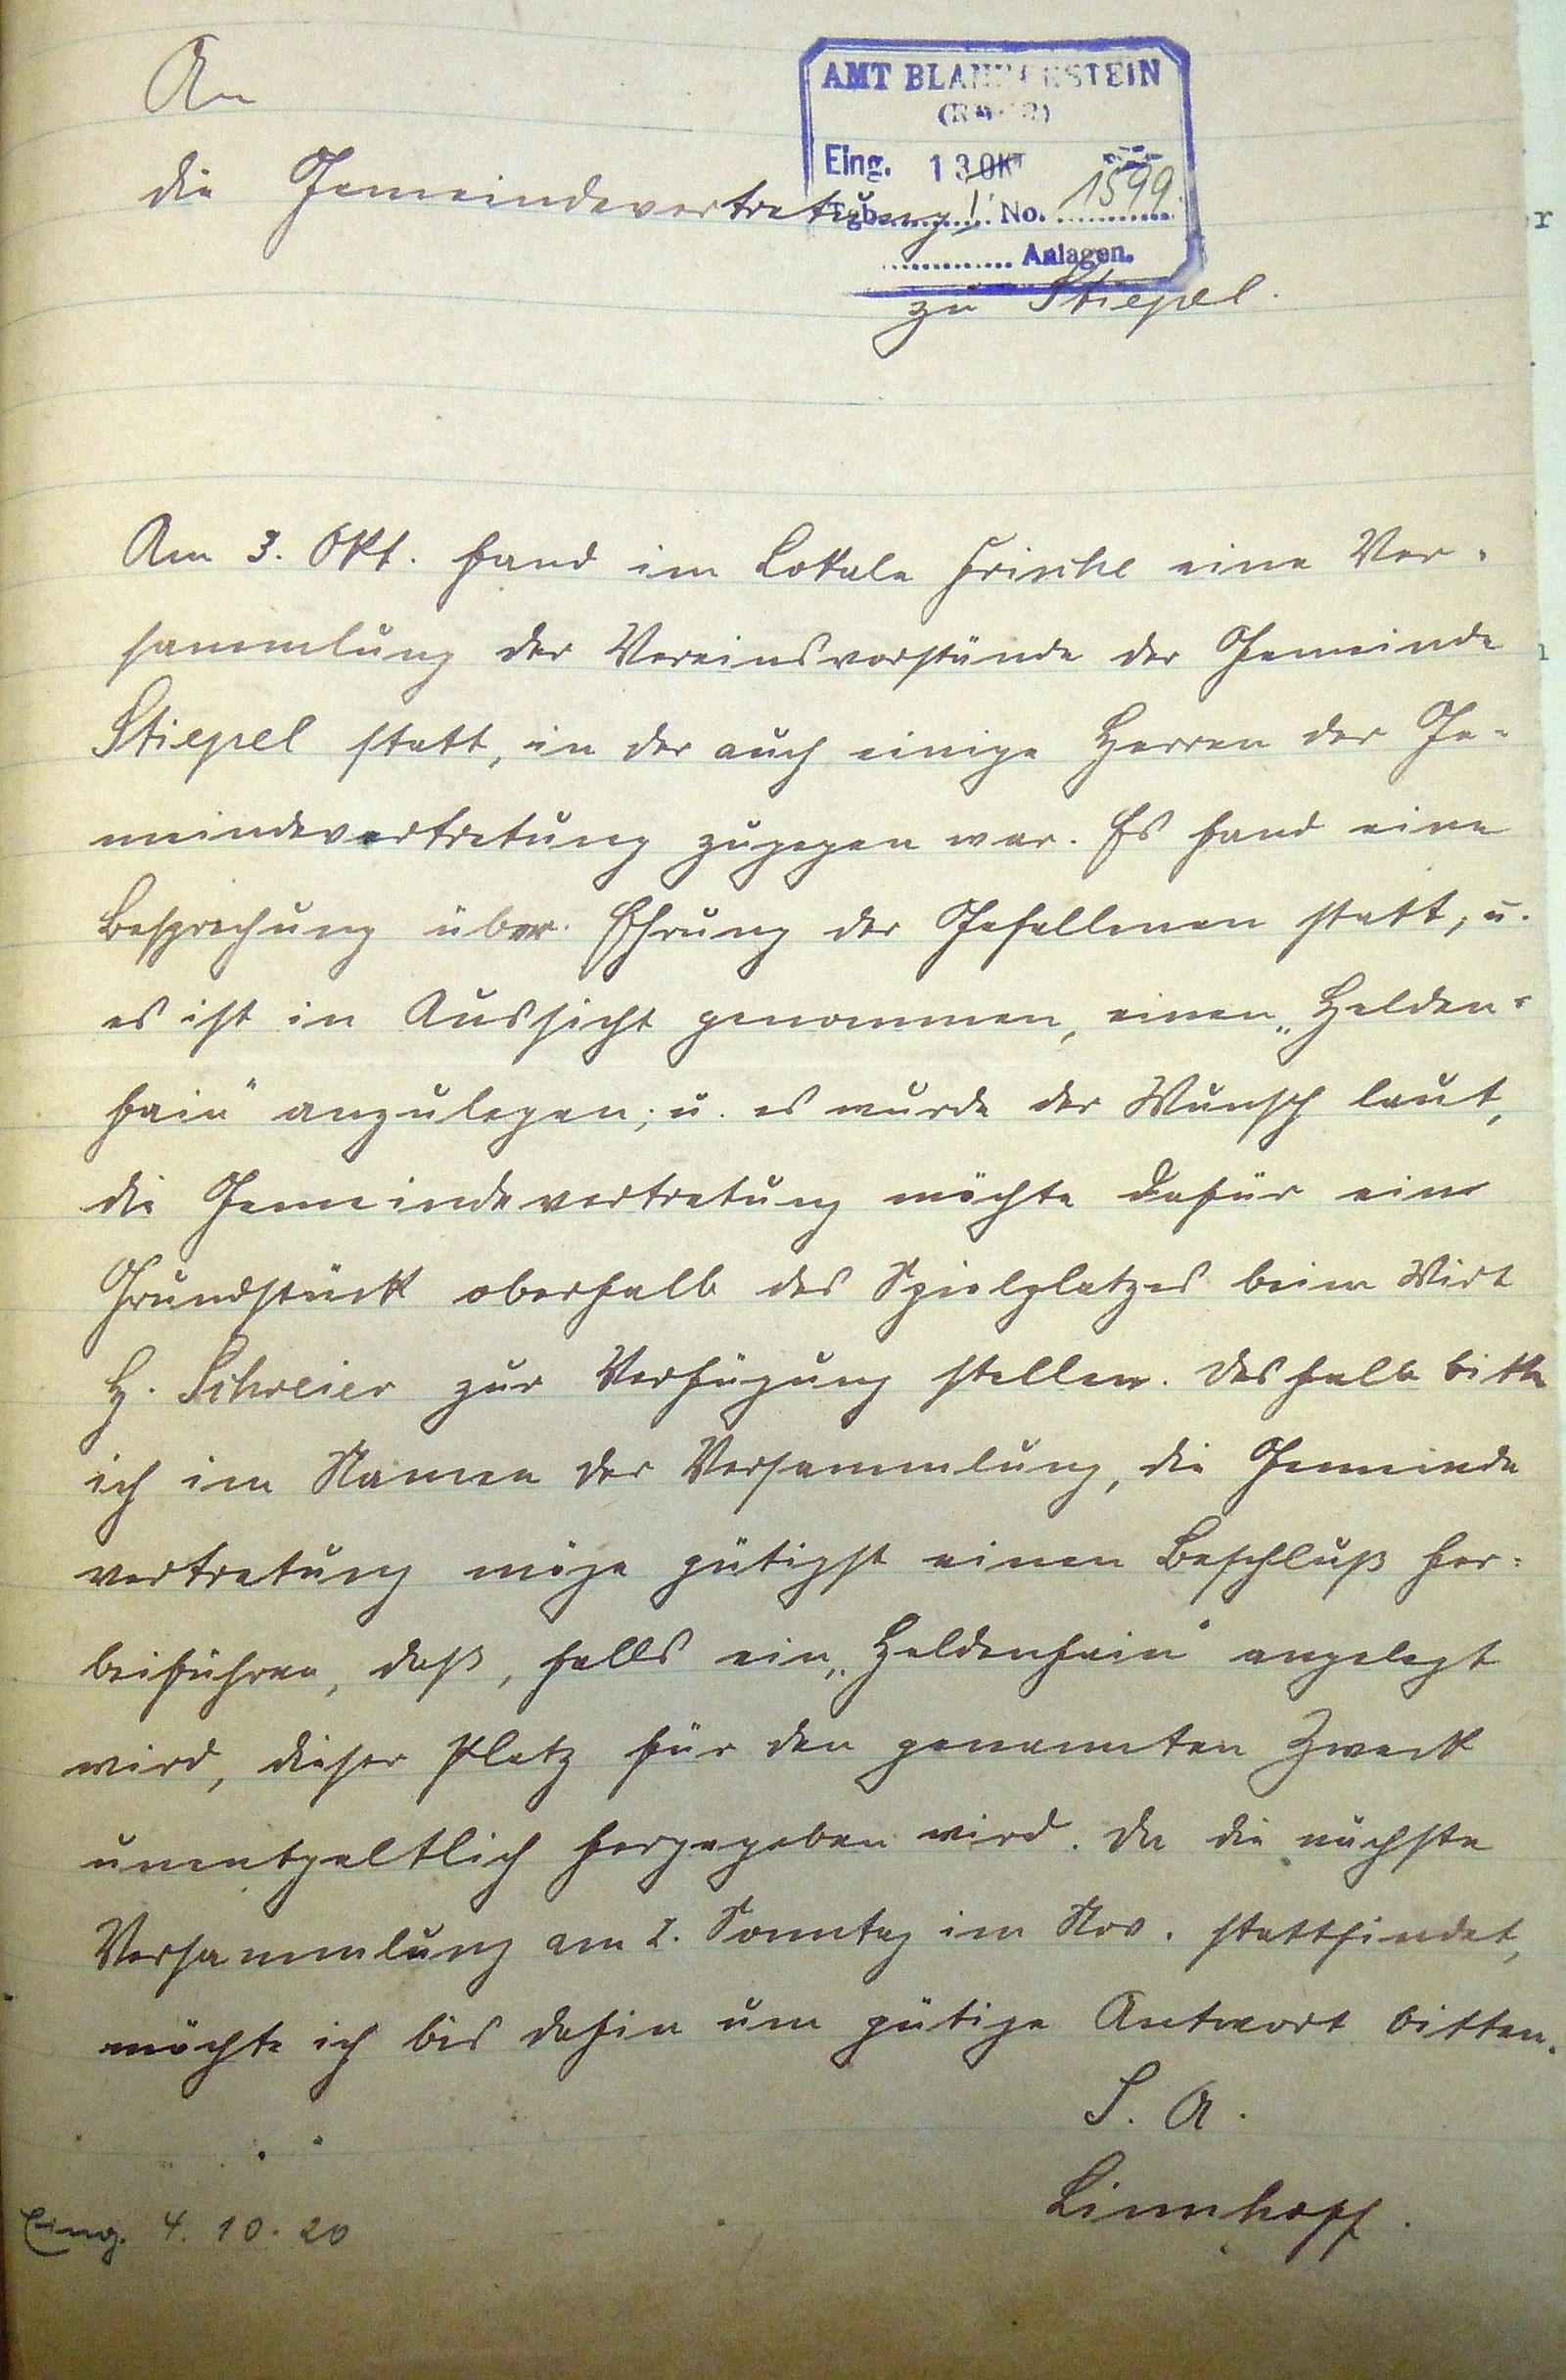 An
AMT BLANKENSTEIN
(RUHR)
Eing. 13 OKT
die Gemeindevertretung
Tgb. ........ I No. 1599
............ Anlagen.
zu Stiepel.
Am 3. Okt. fand im Lokale Frische eine Ver-
sammlung der Vereinsvorstände der Gemeinde
Stiepel statt, in der auch einige Herren der Ge-
meindevertretung zugegen war. Es fand eine
Besprechung über Ehrung der Gefallenen statt, u.
es ist in Aussicht genommen, einen „Helden-
hain“ anzulegen; u. es wurde der Wunsch laut,
die Gemeindevertretung möchte dafür ein
Grundstück oberhalb des Spielplatzes beim Wirt
H. Schreier zur Verfügung stellen. Deshalb bitte
ich im Namen der Versammlung, die Gemeinde
vertretung möge gütigst einen Beschluß her-
beiführen, daß, falls ein „Heldenhain“ angelegt
wird, dieser Platz für den genannten Zweck
unentgeltlich hergegeben wird. Da die nächste
Versammlung am 2. Sonntag im Nov. stattfindet,
möchte ich bis dahin um gütige Antwort bitten.
I. A.
Linnhoff.
Eing. 4. 10. 20